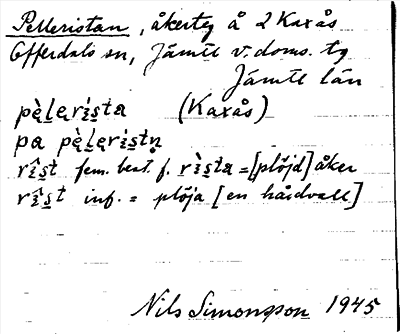 Pelleristan, åkerteg å 2 Kaxås
Offerdals sn, Jämtl v. doms. tg
Jämtl län
pèlerista (Kaxås)
pa pèleristn
rîst fem. best. f. rìsta = [plöjd] åker
rîst inf. = plöja [en hårdvall]
Nils Simonsson 1945